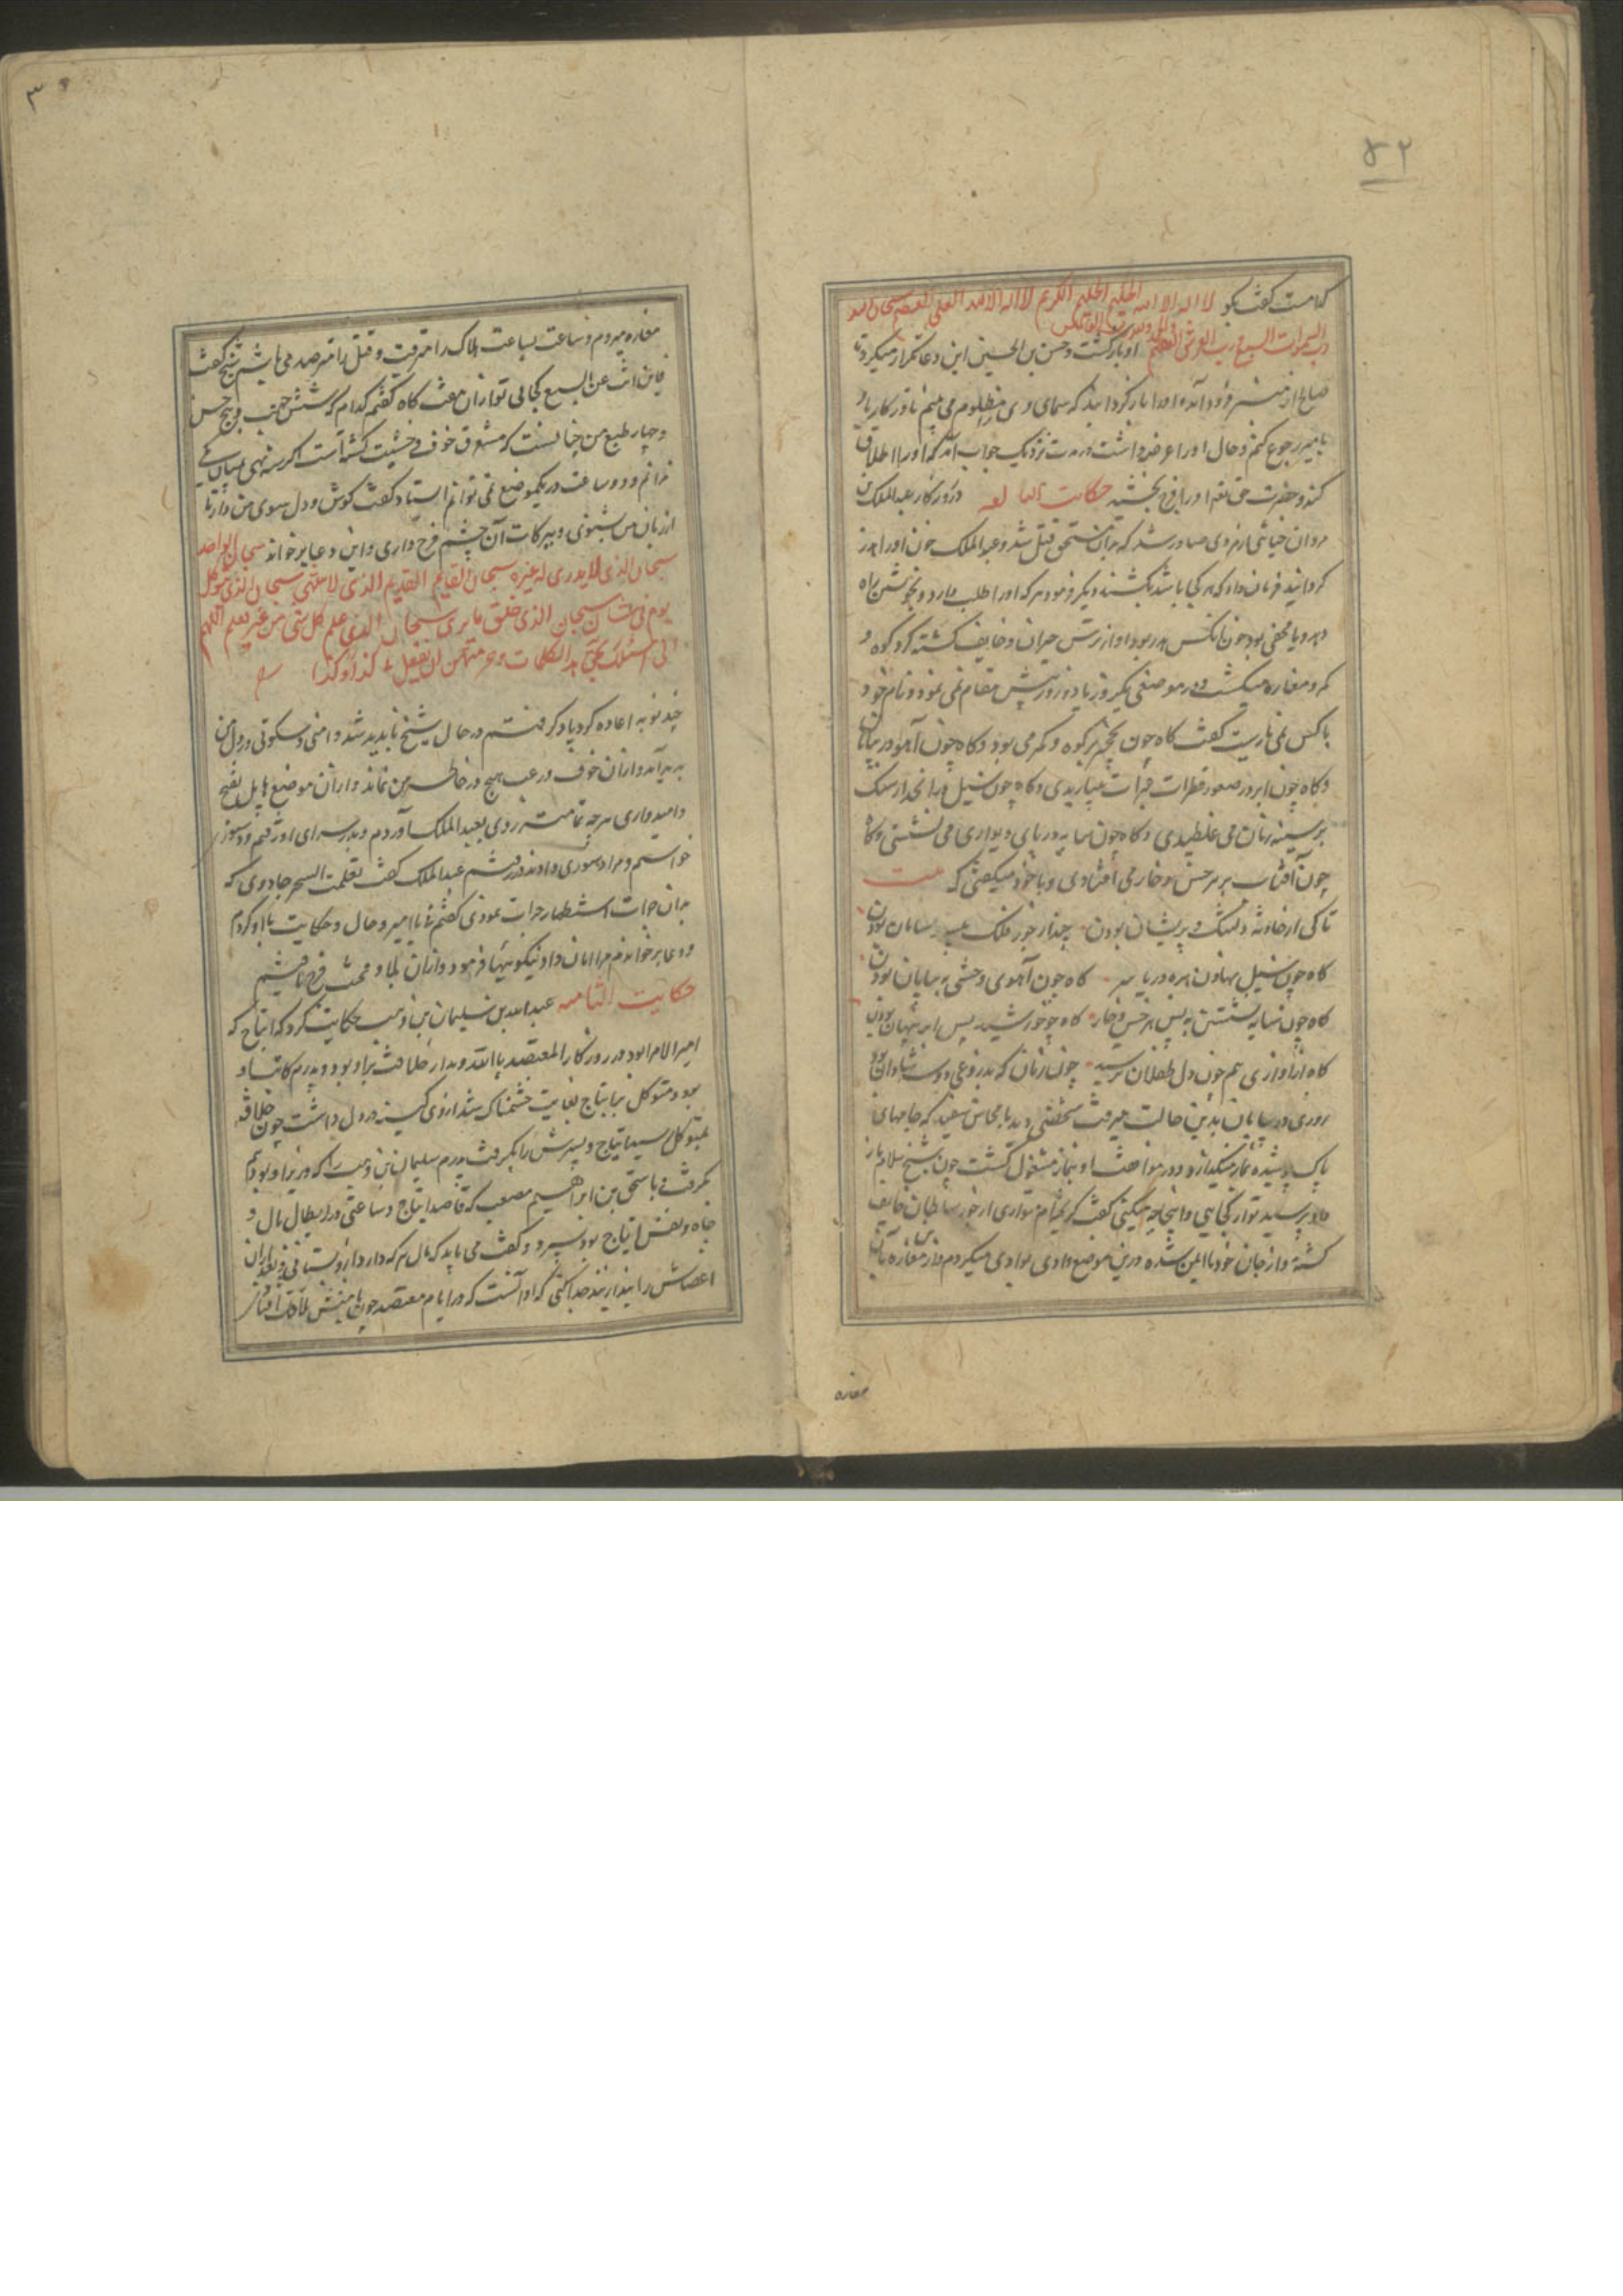 ۵۲
کدامست کفت بکو لا اله الا الله الحلیم الکریم لا اله الا الله العلی العظیم سبحان الله
رب السموات السبع و رب العرش العظیم او بازکشت و حسن بن الحسین این دعا تکرار میکرد تا
صالح از منبر فرود آمد او را باز کردانید که سیمای وی را مظلوم می بینم تا در کار او
بامیر رجوع کنم و حال او را عرضه داشت در مدت نزدیک جواب آمد که او را اطلاق
کنند و حضرت حق تعالی او را فرج بخشید حکایت السابعه در روزکار عبدالملک بن
مروان خیانتی از مردی صادر شد که بدان مستحق قتل شد و عبدالملک خون او را هدر
کردانید فرمان داد که هر کجا باشد بکشند و دیکر فرمود هر که او را طلب دارد و بخویشتن راه
دهد و یا مخفی بود خون آنکس هدر بود او از ترس حیران و خایف کشته کرد کوه و
که و مغاره میکشت و در موضعی یکروز یا دو روز بیش مقام نمی نمود و نام خود
با کس نمی یارست کفت کاه چون نخجیر بر کوه و کمر می بود و کاه چون آهو در بیابان
و کاه چون ابر در صعود قطرات عبرات میباریدی و کاه چون سیل در انحدار سنک
بر سینه زنان می غلطیدی و کاه چون سایه در پای دیواری می نشستی و کاه
چون آفتاب بر سر خس و خار می افتادی و با خود میکفتی که بیت
تا کی از حادثه دلتنک و پریشان بودن چند از جور فلک بی سر و سامان بودن
کاه چون سیل نهادن همه در پا سر کاه چون آهوی وحشی به بیابان بودن
کاه چون سایه نشستن به پس هر خس و خار کاه چو خورشید پس ابر پنهان بودن
کاه از آوازی هم چون دل طفلان ترسید چون زنان که بدروغی دو سه شادان بودن
روزی در بیابان بدین حالت میرفت شخصی دید با محاسن سفید که جامهای
پاک پوشیده نماز میکذارد و در موافقت او بنماز مشغول کشت چون شیخ سلام باز
داد پرسید تو از کجایی و اینجا چه میکنی کفت کریخته ام متواری از جور سلطان خایف
کشته و از جان خود نا ایمن شده درین موضع وادی بوادی میکردم و از مغاره بآن
مغاره
۳
مغاره میروم و ساعت بساعت هلاک را مترقب و قتل را مترصد می باشم شیخ کفت
فاین انت عن السبع کجایی تو از آن هفت کاه کفتم کدام که شش جهت و پنج حس
و چهار طبع من چنانست که مستغرق خوف و خشیت کشته است اکر سه نهی بمیان
ندانم و دو ساعت در یکموضع نمی توانم ایستاد کفت کوش و دل سوی من دار تا
از زبان من بشنوی و ببرکات آن چشم فرج داری و این دعا بر خواند سبحان الواحد
سبحان الذی لا یدری له غیره سبحان القایم القدیم الذی لا منتهی سبحان الذی هو کل
یوم فی شان سبحان الذی خلق ما یری سبحان الذی علم کل شی من غیر تعلم اللهم
انی اسئلک بحق هذه الکلمات و حرمتهن ان تفعل بی کذا و کذا
چند نوبه اعاده کرد یاد کرفتم در حال شیخ ناپدید شد و امنی و سکوتی در دل من
پدید آمد و از آن خوف و رعب هیچ در خاطر من نماند و از آن موضع
و امیدواری هرچه تمامتر روی بعبدالملک آوردم و بدر سرای او رفتم و دستوری
خواستم و مرا دستوری دادند در رفتم عبدالملک کفت تعلمت السحر جادوی که
بدان جرات استظهار جرات نمودی کفتم نه یا امیر و حال و حکایت با او کردم
و دعا بر خواندم مرا امان داد و نیکوییها فرمود و از آن بلا و محنت فرج یافتم
حکایت الثامنه عبدالله بن سلیمان بن وهب حکایت کرد که ایتاج که
امیر الامرا بود در روزکار المعتصد بالله و مدار خلافت بر او بود و پدرم کاتب او
بود و متوکل بر ایتاج بغایت خشمناک شد از وی کینه در دل داشت چون خلافه
بمتوکل رسید ایتاج و پسرش را بکرفت و پدرم سلیمان بن وهب را که وزیر او بود هم
بکرفت و باسحق بن ابراهیم مصعب که قاصد ایتاج و ساعی در ابطال مال و
جاه و نفس ایتاج بود سپرد و کفت می باید که مال هر که دارد از و بستانی و بعد از آن
اعضاش را بند از بند جدا کنی که او آنست که در ایام معتصد چون